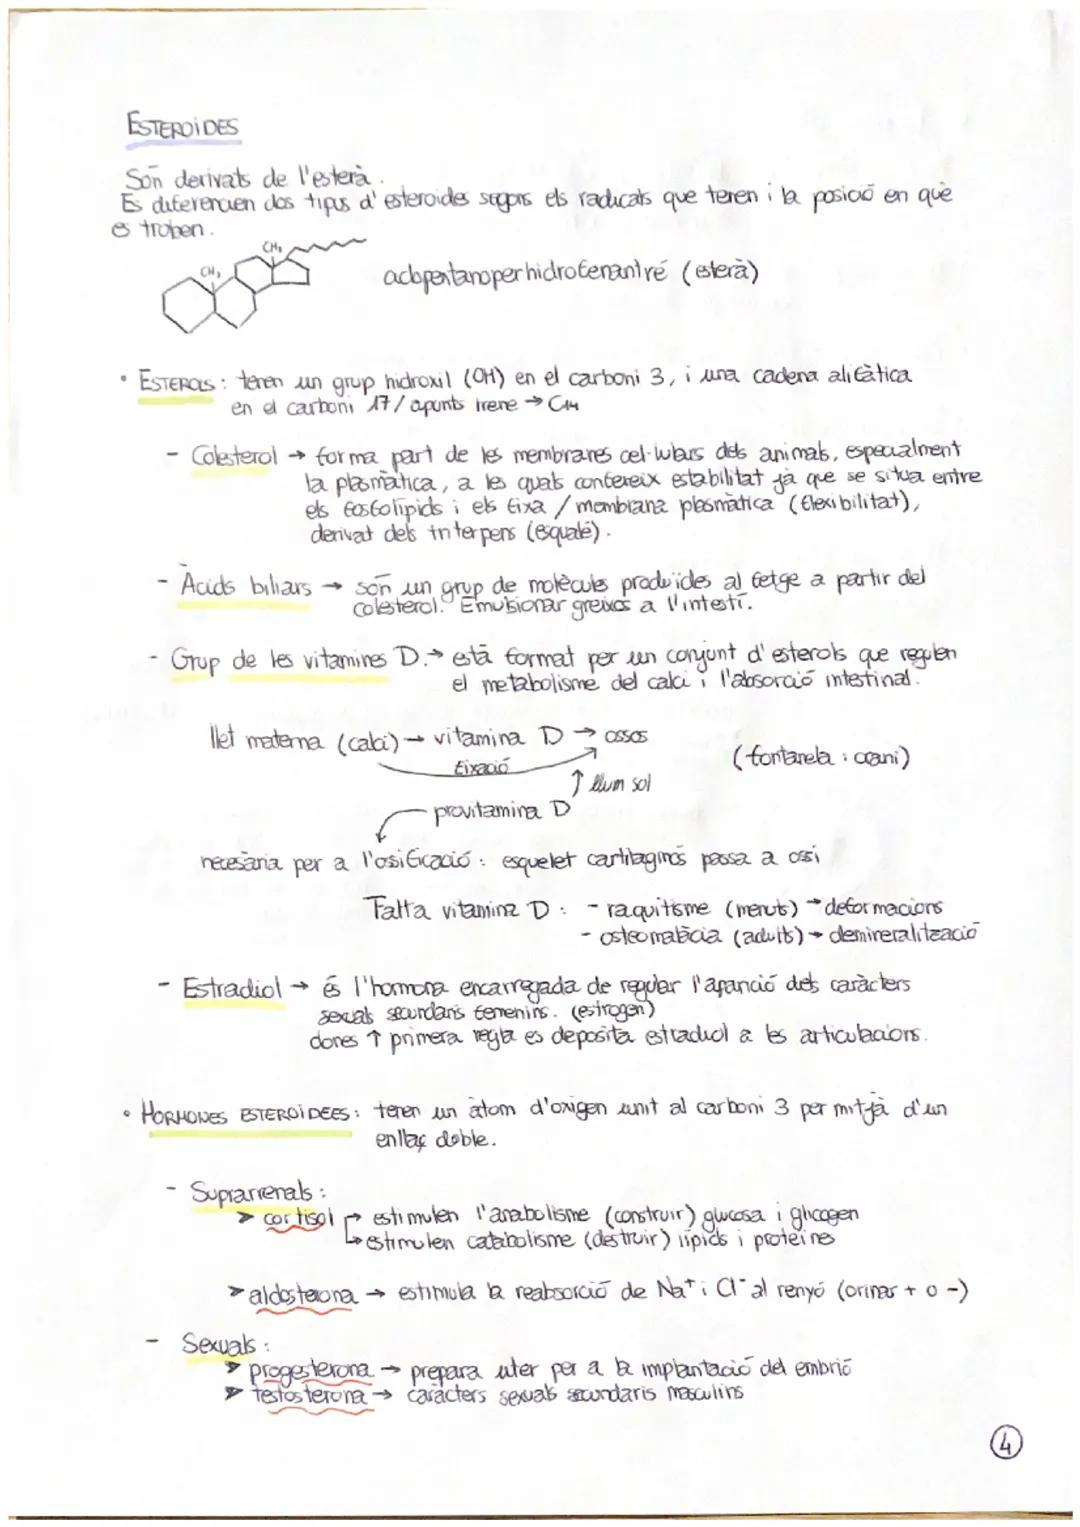 ESTEROÏDES
Són derivats de l'esterà.
Es diferencien dos tipus d'esteroides segons els radicals que tenen i la posició en què
es troben.
CH₃
CH₃
ciclopentanoperhidrofenantré (esterà)
• ESTEROLS: tenen un grup hidroxil (OH) en el carboni 3, i una cadena alifàtica
en el carboni 17/ apunts Irene → C14
- Colesterol → forma part de les membranes cel·lulars dels animals, especialment
la plasmàtica, a les quals confereix estabilitat jà que se situa entre
els fosfolípids i els fixa / membrana plasmàtica (flexibilitat),
derivat dels triterpens (esqualé).
- Àcids biliars → són un grup de molècules produïdes al fetge a partir del
colesterol. Emulsionar greixos a l'intestí.
- Grup de les vitamines D. → està format per un conjunt d'esterols que regulen
el metabolisme del calci i l'absorció intestinal.
llet materna (calci) → vitamina D → ossos
fixació
(fontanela : crani)
↑ llum sol
provitamina D
necesària per a l'osificació : esquelet cartilaginós passa a ossi
Falta vitamina D : - raquitisme (menuts) → deformacions
- osteomalàcia (adults) → demineralització
- Estradiol → és l'hormona encarregada de regular l'aparició dels caràcters
sexuals secundaris femenins. (estrogen)
dones ↑ primera regla es deposita estradiol a les articulacions.
• HORMONES ESTEROÏDEES: tenen un àtom d'oxigen unit al carboni 3 per mitjà d'un
enllaç doble.
- Suprarrenals :
➤ cortisol → estimulen l'anabolisme (construir) glucosa i glicogen
→ estimulen catabolisme (destruir) lípids i proteïnes
➤ aldosterona → estimula la reabsorció de Na⁺ i Cl⁻ al renyó (orinar + o -)
- Sexuals :
➤ progesterona → prepara uter per a la implantació del embrió
➤ testosterona → caràcters sexuals secundaris masculins
4